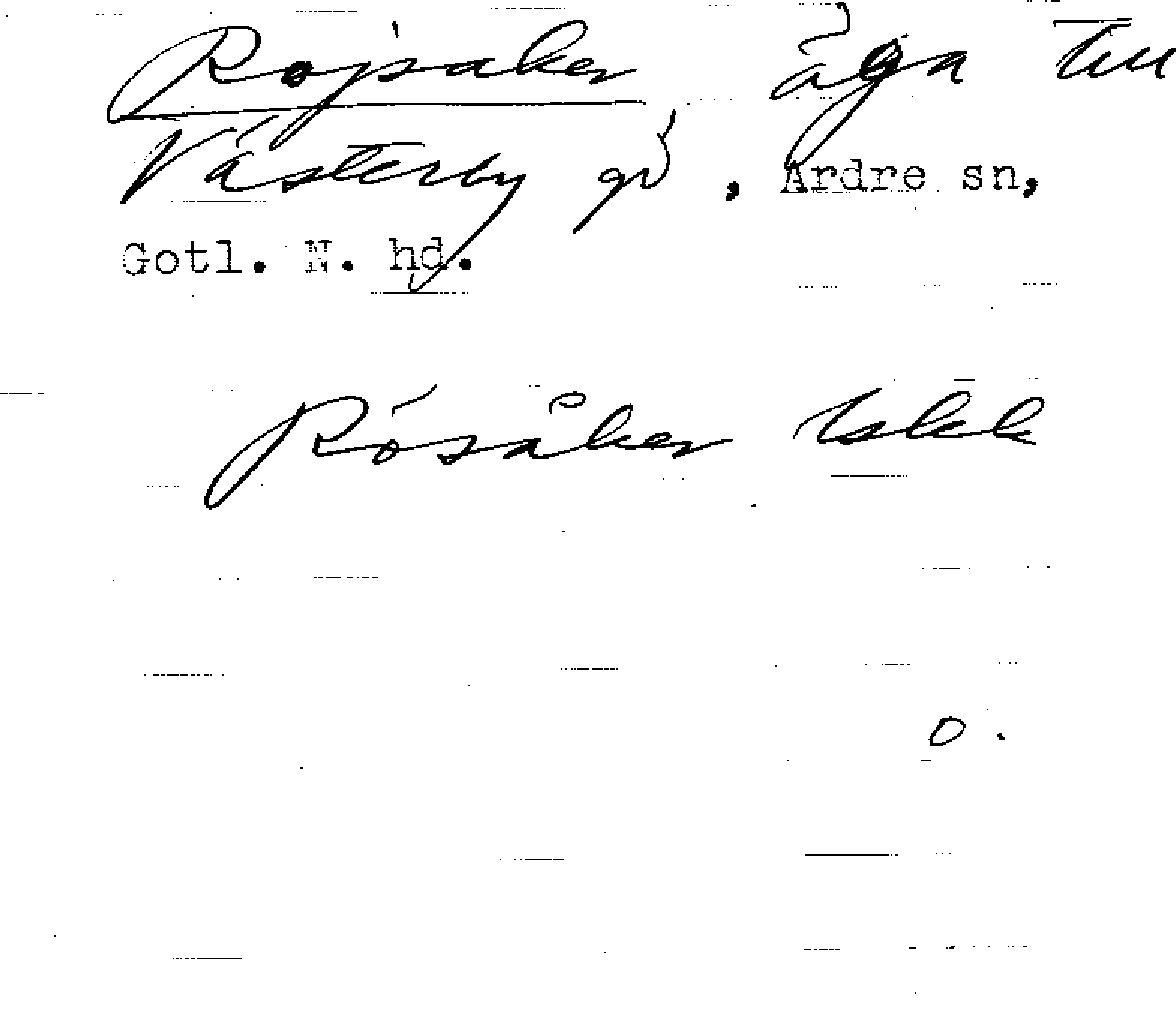 Rojsaker, äga till
Västerby gd, Ardre sn,
Gotl. N. hd.
Rösåker Iskk
O.